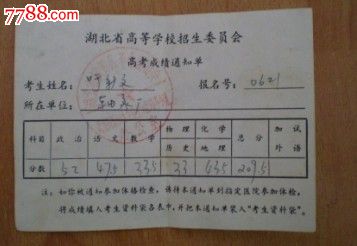 7788.com
湖北省高等学校招生委员会
高考成绩通知单
考生姓名： 报名号：0621
所在单位：
科目 政治 语文 数学 物理 化学 总分 加试
历史 地理 外语
分数 52 47.5 33.5 33 43.5 209.5
注：如你被通知参加体格检查，请持本通知单到指定医院参加体检，
将成绩填入考生资料袋各表中，并把本通知单装入“考生资料袋”。